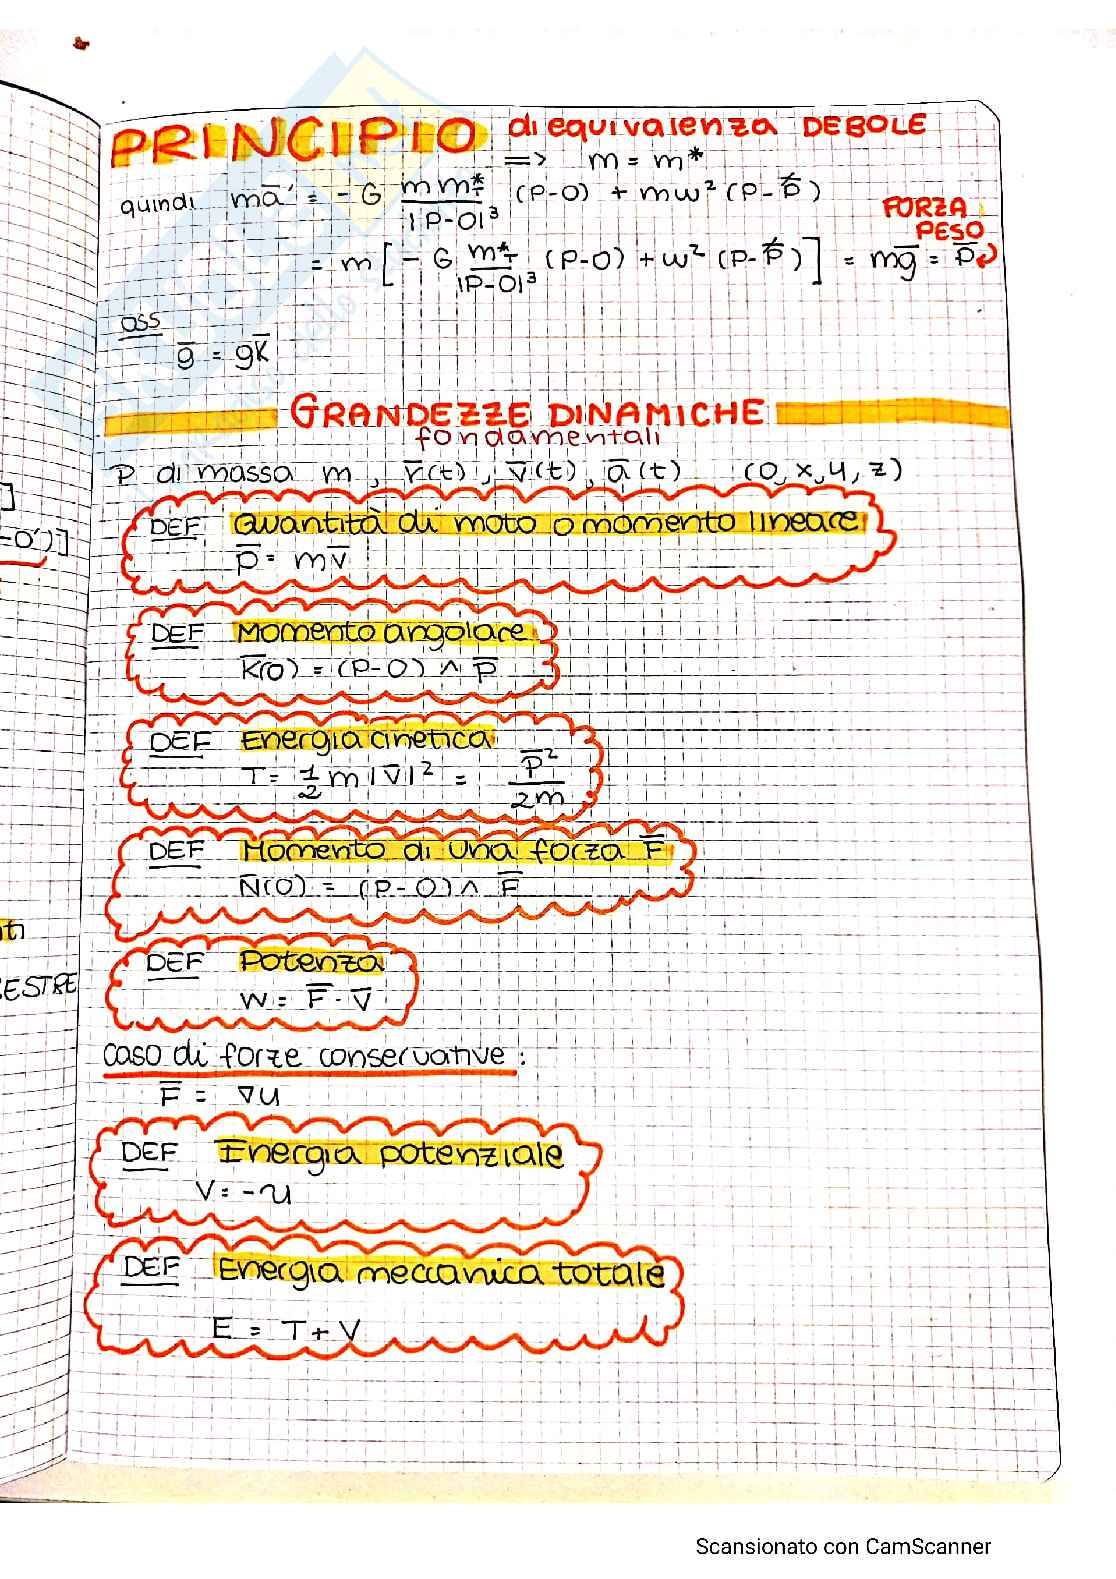 PRINCIPIO di equivalenza DEBOLE
=> m = m*
quindi m a̅' = - G m m*_T / |P-O|³ (P-O) + mω² (P-P*)
= m [ - G m*_T / |P-O|³ (P-O) + ω² (P-P*) ] = m g̅ = p̅
FORZA
PESO
OSS
g̅ = g k̅
GRANDEZZE DINAMICHE
fondamentali
P di massa m , r̅(t) , v̅(t) , a̅(t) (O, x, y, z)
DEF Quantità di moto o momento lineare
p̅ = m v̅
DEF Momento angolare
K̅(O) = (P-O) ∧ p̅
DEF Energia cinetica
T = 1/2 m |v̅|² = p̅² / 2m
DEF Momento di una forza F̅
N̅(O) = (P-O) ∧ F̅
DEF Potenza
W = F̅ · v̅
caso di forze conservative :
F̅ = ∇U
DEF Energia potenziale
V = -U
DEF Energia meccanica totale
E = T + V
-O')]
ESTRE
Scansionato con CamScanner